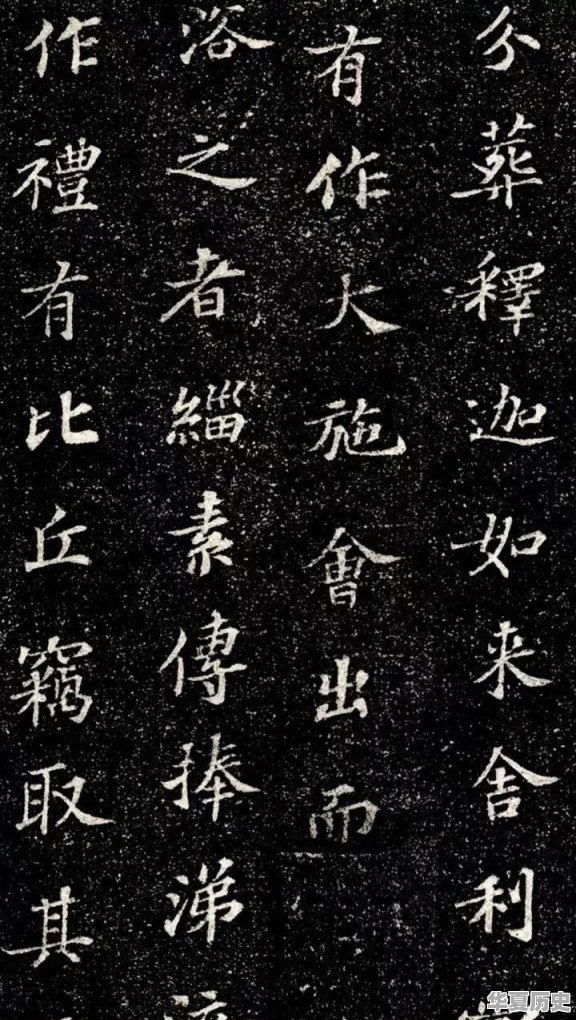 分葬釋迦如来舎利
有作大施會出而
浴之者緇素傳捧涕
作禮有比丘竊取其
华夏历史